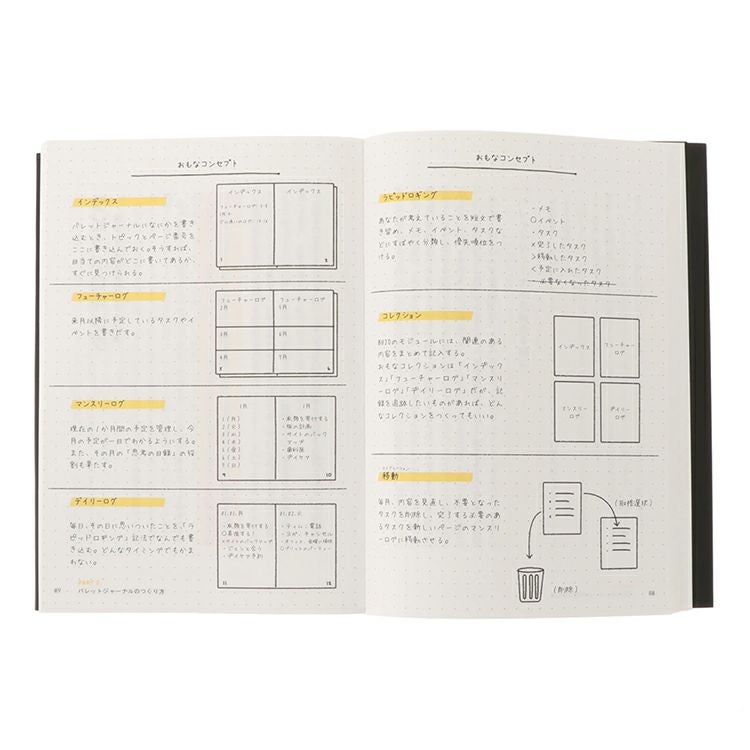 おもなコンセプト
インデックス
バレットジャーナルになにかを書き
込むとき、トピックとページ番号を
ここに書き込んでおく。そうすれば、
目当ての内容がどこに書いてあるか、
すぐに見つけられる。
インデックス
インデックス
フューチャーログ
来月以降に予定しているタスクやイ
ベントを書きだす。
フューチャーログ
フューチャーログ
2月
5月
3月
6月
4月
7月
マンスリーログ
現在の1か月間の予定を管理し、今
月の予定が一目でわかるようにする。
また、その月の「思考の目録」の役
割も果たす。
1月
1月
1(月)
2(火)
3(水)
4(木)
5(金)
6(土)
7(日)
・旅の計画
・サイトのバック
アップ
・歯科医
・デイケア
9
10
デイリーログ
毎日、その日に思いついたことを、「ラ
ピッドロギング」記法でなんでも書
き込む。どんなタイミングでもかま
わない。
01.01.月
01.02.火
・ティム:電話
・ヨガ、キャンセル
・デイケア予約
11
12
89
PART 2
バレットジャーナルのつくり方
おもなコンセプト
ラピッドロギング
あなたが考えていることを短文で書
き留め、メモ、イベント、タスクな
どにすばやく分類し、優先順位をつ
ける。
-メモ
○イベント
・タスク
×完了したタスク
>移動したタスク
<予定に入れたタスク
・必要なくなったタスク
コレクション
BUJOのモジュールには、関連のある
内容をまとめて記入する。
おもなコレクションは「インデック
ス」「フューチャーログ」「マンスリ
ーログ」「デイリーログ」だが、記
録を追跡したいものがあれば、どん
なコレクションをつくってもいい。
インデックス
フューチャー
ログ
マンスリー
ログ
デイリー
ログ
移動
毎月、内容を見直し、不要となった
タスクを削除し、完了する必要のあ
るタスクを新しいページのマンスリ
ーログに移動させる。
(取捨選択)
(削除)
88